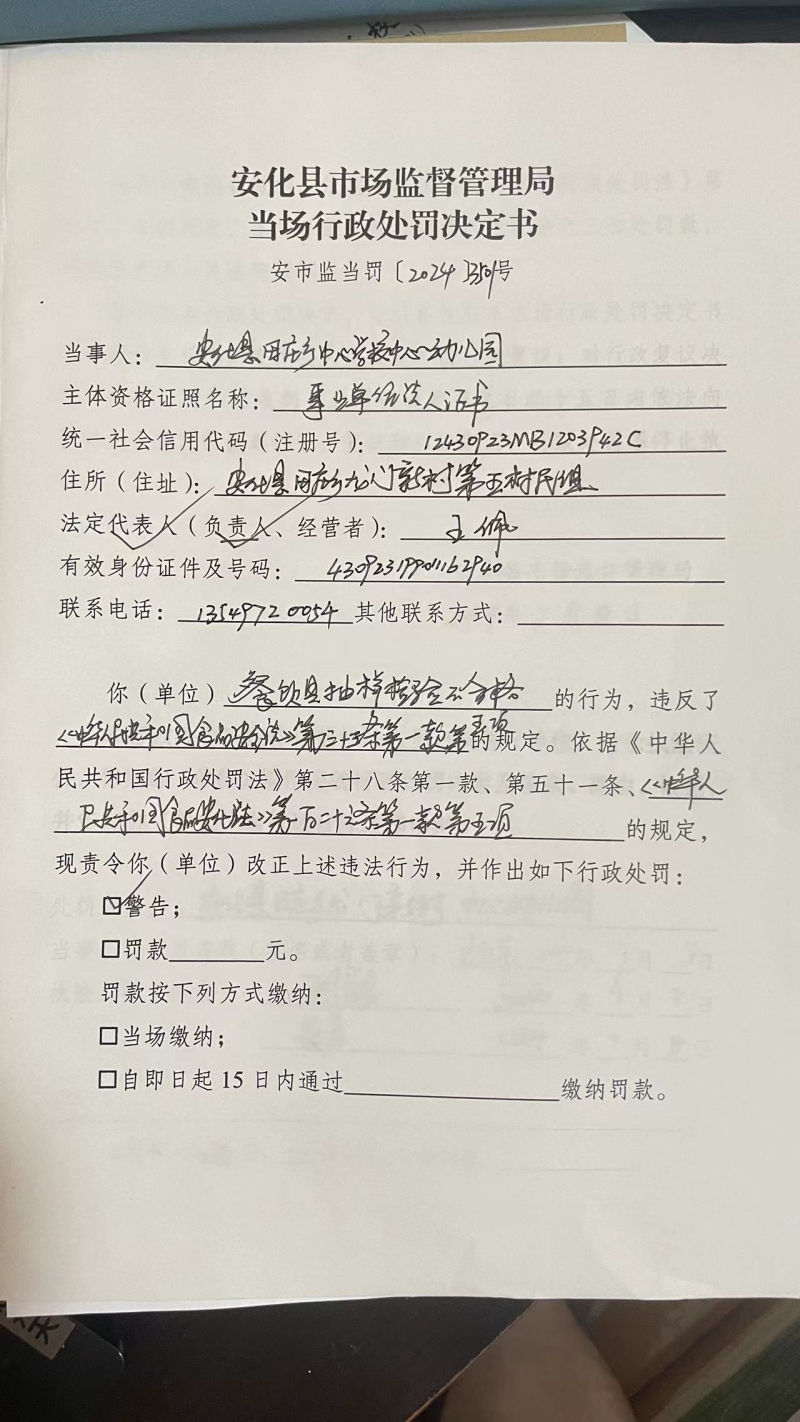 安化县市场监督管理局
当场行政处罚决定书
安市监当罚〔2024〕350号
当事人：安化县田庄乡中心学校中心幼儿园
主体资格证照名称：事业单位法人证书
统一社会信用代码（注册号）：12430923MB1203942C
住所（住址）：安化县田庄乡 新村第五村民组
法定代表人（负责人、经营者）：王佩
有效身份证件及号码：43092319901162940
联系电话：13549720054 其他联系方式：
你（单位）餐饮具抽样检验不合格的行为，违反了
《中华人民共和国食品安全法》第三十三条第一款第五项的规定。依据《中华人
民共和国行政处罚法》第二十八条第一款、第五十一条、《中华人
民共和国食品安全法》第一百二十六条第一款第五项的规定，
现责令你（单位）改正上述违法行为，并作出如下行政处罚：
☑警告；
□罚款 元。
罚款按下列方式缴纳：
□当场缴纳；
□自即日起 15 日内通过 缴纳罚款。